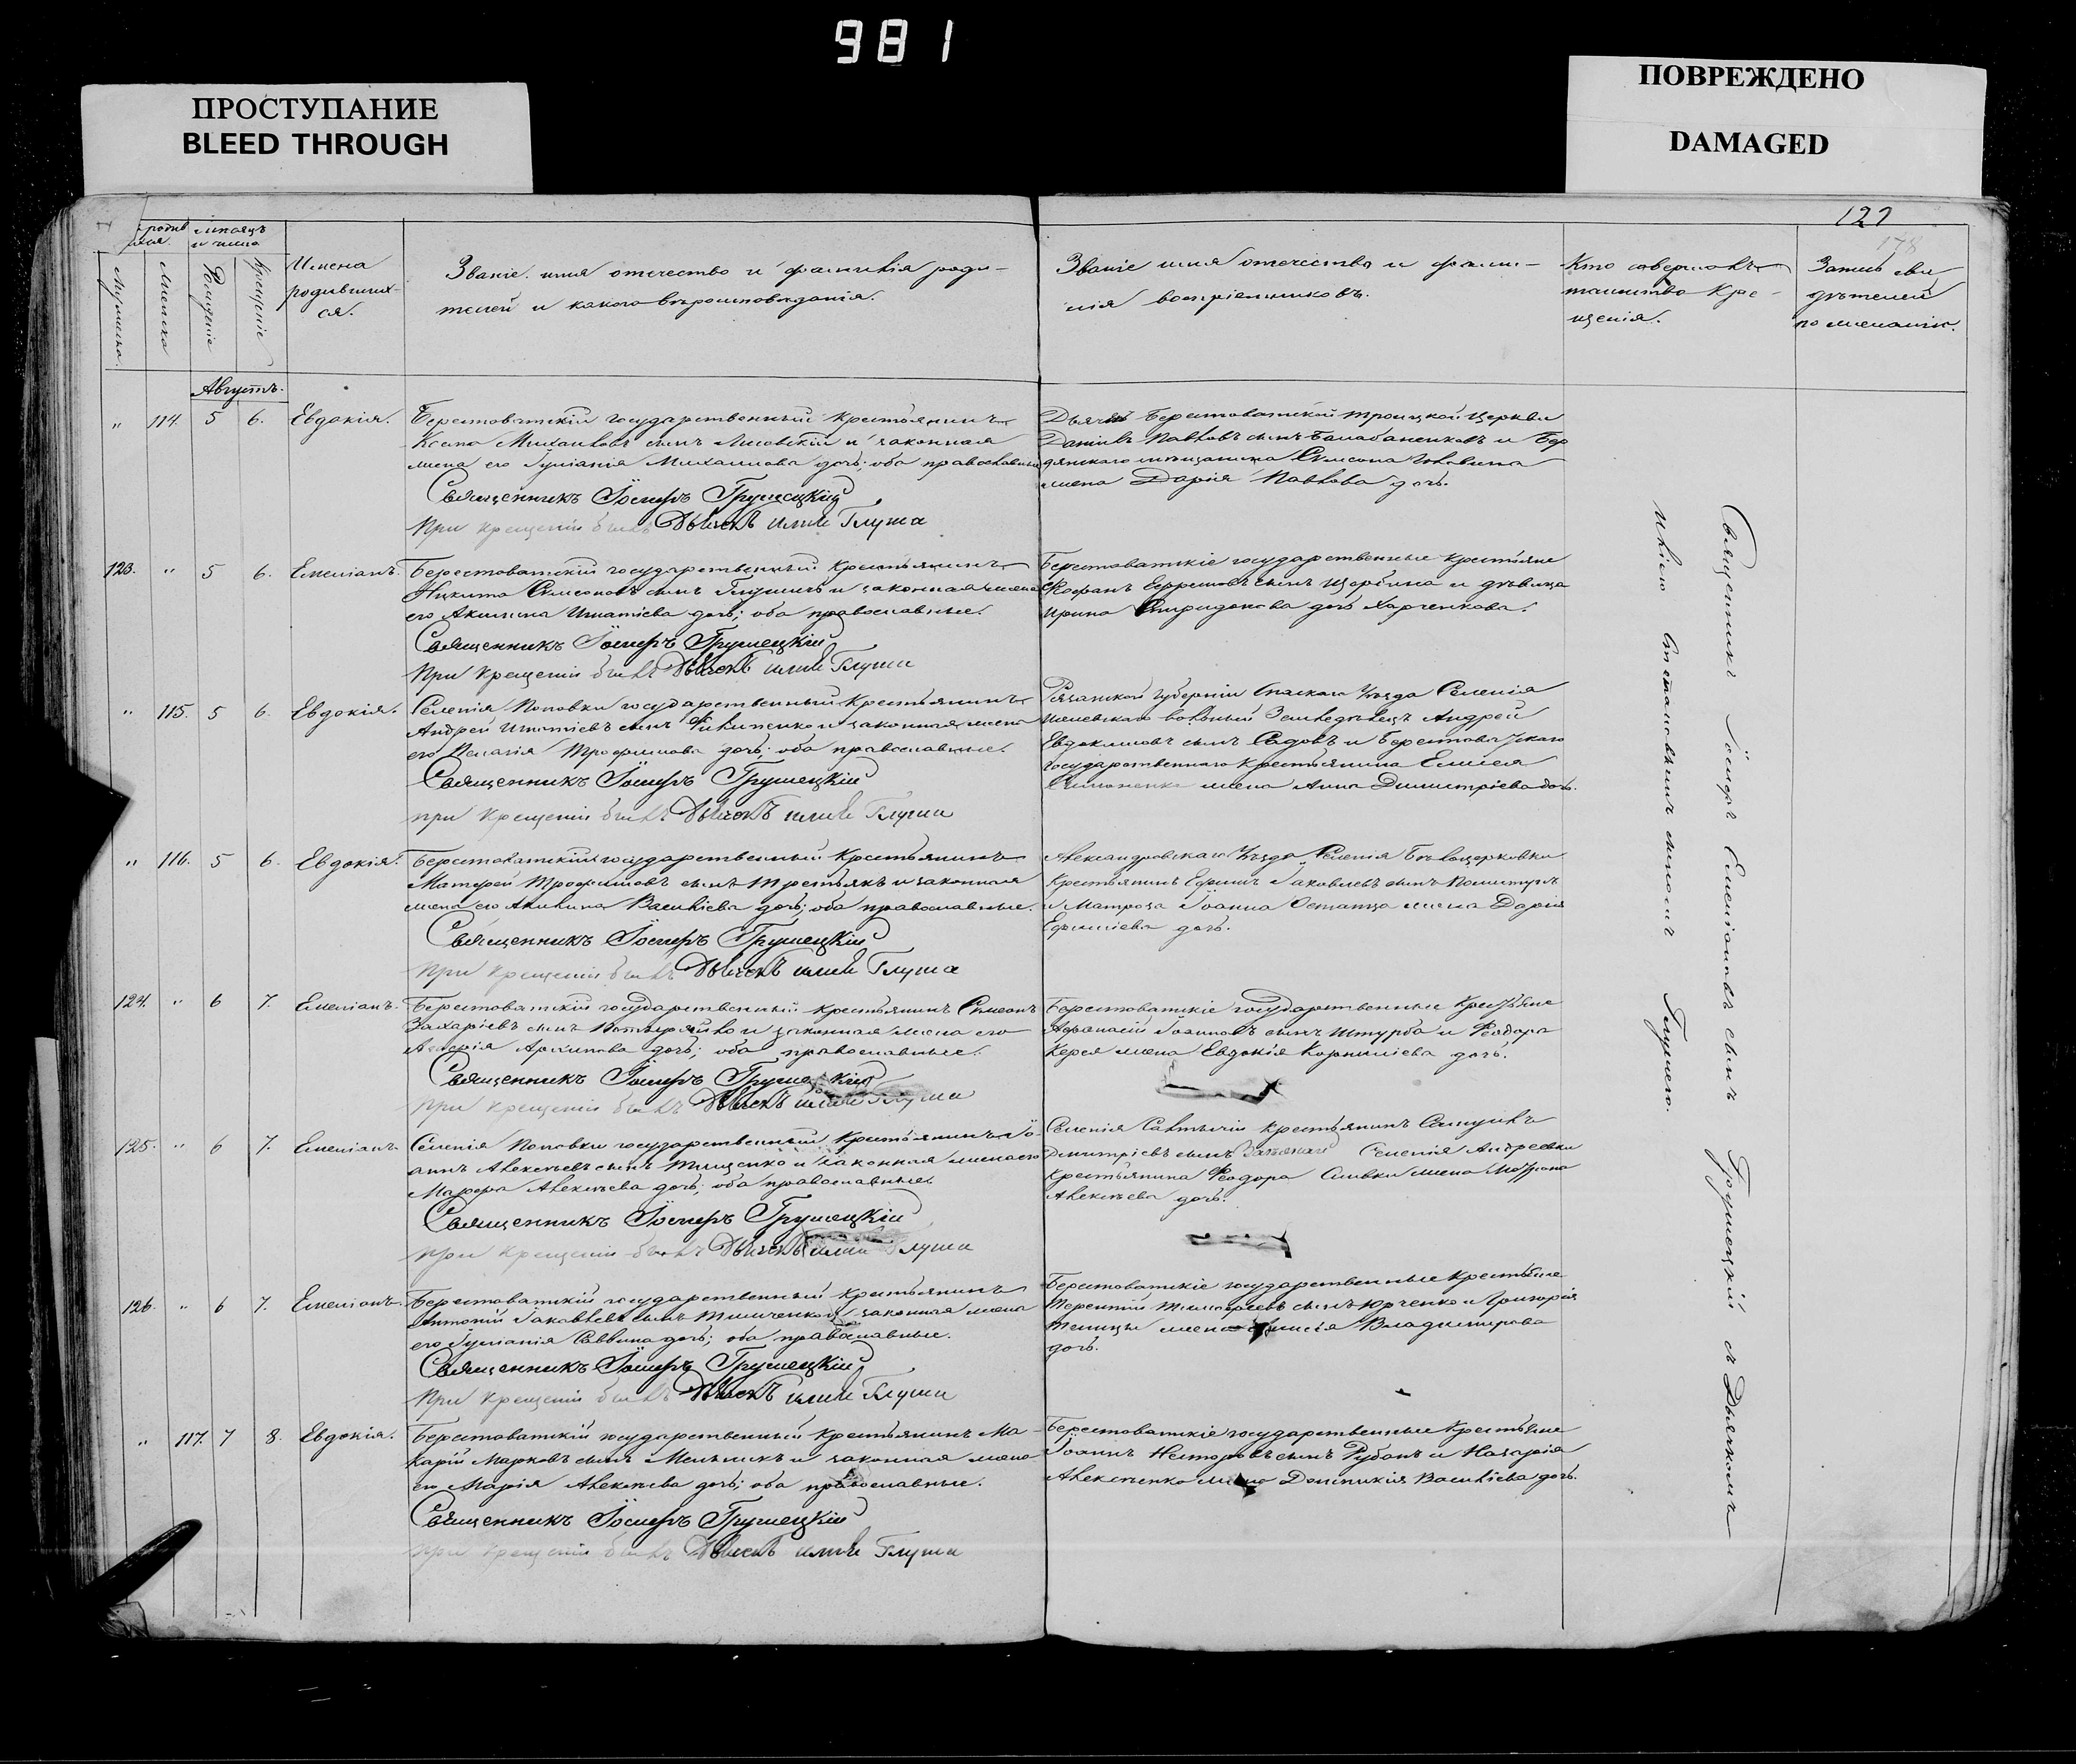 981
ПРОСТУПАНИЕ
BLEED THROUGH
ПОВРЕЖДЕНО
DAMAGED
127
178
Мужеска.
Женска
Рожденіе
Крещеніе
мѣсяцъ
и число
Имена
родивших-
ся.
Званіе. имя отечество и фамилія роди-
телей и какого вѣроисповеданія.
Званіе имя отечество и фами-
лія воспріемниковъ.
Кто совершалъ
таинство Кре-
щенія.
Запись сви
дѣтелей
по желанію.
Августъ.
" 114. 5 6. Евдокія.
Берестоватскій государственный крестьянинъ
Михаиловъ сынъ Лисовскій и законная
жена его Іуліанія Михаилова дочь; оба православные
Священникъ Іосифъ Грушецкій
При крещеніи былъ Дьячокъ Глуша
Дьячекъ Берестоватской троицкой церкви
Даніилъ Павловъ сынъ Балабаненковъ и Бер
дянского мѣщанина Симеона
жена Дарія Павлова дочь.
123. " 5 6. Емеліанъ.
Берестоватскій государственный крестьянинъ
Никита Симеоновъ сынъ Глушичъ и законная жена
его Акилина Игнатіева дочь; оба православные.
Священникъ Іосифъ Грушецкій
При крещеніи былъ Дьячокъ Глуша
Берестоватскіе государственные крестьяне
Ефремовъ сынъ Щербина и дѣвица
Ирина Спиридонова дочь Харченкова.
" 115. 5 6. Евдокія.
Селенія Поповки государственный крестьянинъ
Андрей Игнатіевъ сынъ Филипенко и законная жена
его Пелагія Трофимова дочь; оба православные.
Священникъ Іосифъ Грушецкій
при крещеніи былъ Дьячокъ Глуша
Рязанской губерніи Спаскаго Уѣзда Селенія
вольный Земледѣлецъ Андрей
Евдокимовъ сынъ Садовъ и Берестоватскаго
государственного крестьянина Елисея
жена Анна Димитріева дочь.
" 116. 5 6. Евдокія.
Берестоватскій государственный крестьянинъ
Матфей Трофимовъ сынъ Третьякъ и законная
жена его Акилина Василіева дочь; оба православные.
Священникъ Іосифъ Грушецкій
при крещеніи былъ Дьячокъ Глуша
Александровскаго Уѣзда Селенія Бѣлоцерковки
крестьянинъ Ефимъ Іаковлевъ сынъ
и Матроса Іоанна жена Дарія
Ефиміева дочь.
124. " 6 7. Емеліанъ.
Берестоватскій государственный крестьянинъ Симеонъ
Захаріевъ сынъ и законная жена его
Архипова дочь; оба православные.
Священникъ Іосифъ Грушецкій
при крещеніи былъ Дьячокъ Глуша
Берестоватскіе государственные крестьяне
Афанасій Іоанновъ сынъ Штурба и Феодора
жена Евдокія Корниліева дочь.
125. " 6 7. Емеліанъ.
Селенія Поповки государственный крестьянинъ Іо-
аннъ Алексѣевъ сынъ Тищенко и законная жена его
Марфа Алексѣева дочь; оба православные.
Священникъ Іосифъ Грушецкій
при крещеніи былъ Дьячокъ Глуша
Селенія крестьянинъ Самуилъ
Димитріевъ сынъ Селенія Андреевки
крестьянина Феодора Сливки жена
Алексѣева дочь.
126. " 6 7. Емеліанъ.
Берестоватскій государственный крестьянинъ
Антоній Іаковлевъ сынъ Тимченко и законная жена
его Іуліанія Саввина дочь; оба православные.
Священникъ Іосифъ Грушецкій
При крещеніи былъ Дьячокъ Глуша
Берестоватскіе государственные крестьяне
Терентій Тимофеевъ сынъ Юрченко и Григорія
жена Владимірова
дочь.
" 117. 7 8. Евдокія.
Берестоватскій государственный крестьянинъ Ма-
карій Марковъ сынъ Мельникъ и законная жена
его Марія Алексѣева дочь; оба православные.
Священникъ Іосифъ Грушецкій
при крещеніи былъ Дьячокъ Глуша
Берестоватскіе государственные крестьяне
Іоаннъ Несторовъ сынъ Рубанъ и Назарія
Алексѣенко жена Домникія Василіева дочь.
Священникъ Іосифъ Емеліановъ сынъ Грушецкій съ Дьячкомъ
Иліею Глушею.